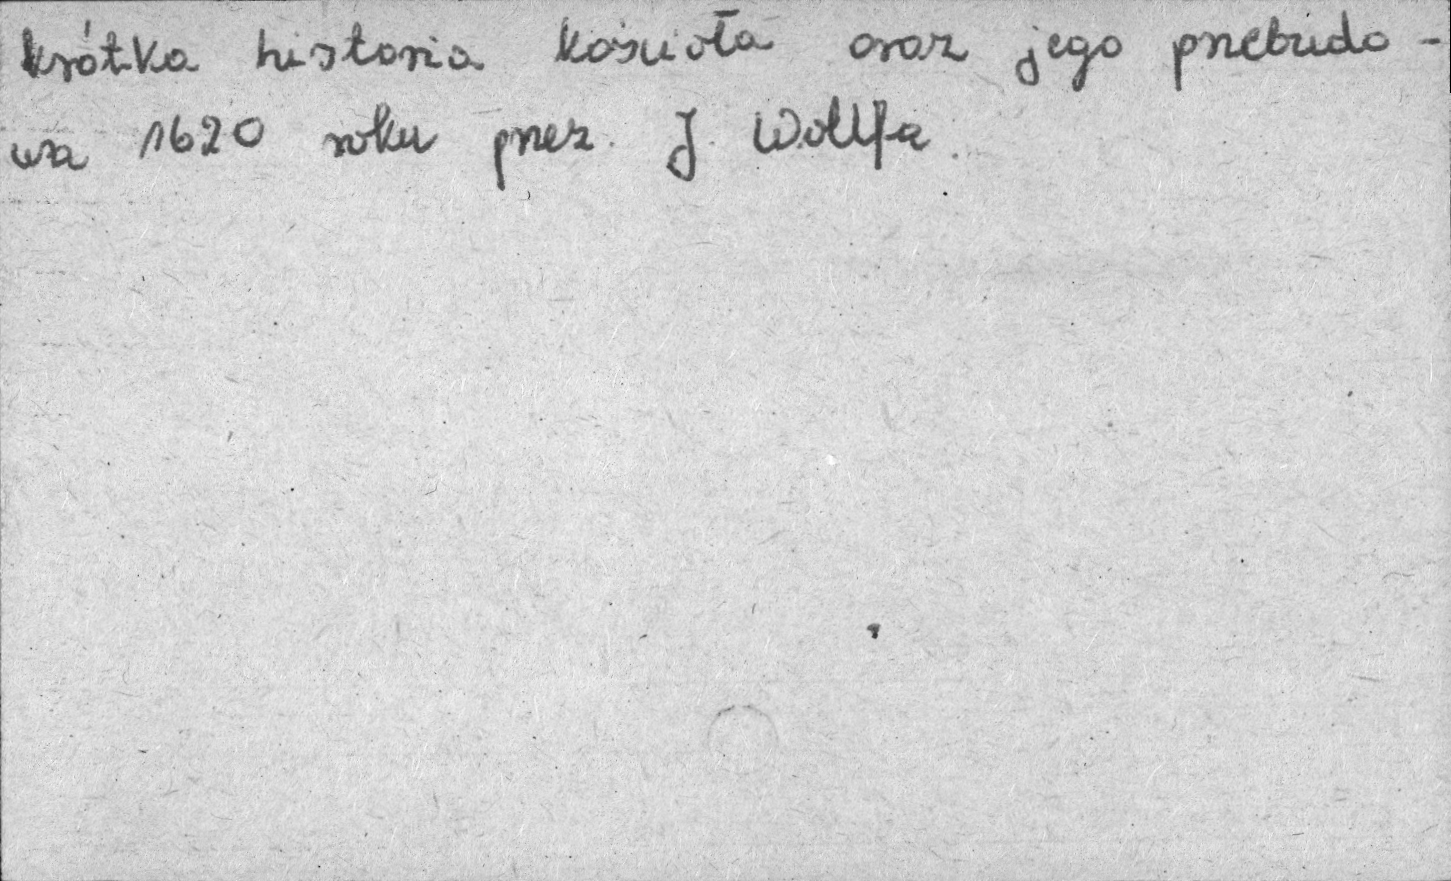 krótka historia kościoła oraz jego przebudo-
wa 1620 roku przez J. Wollfa.